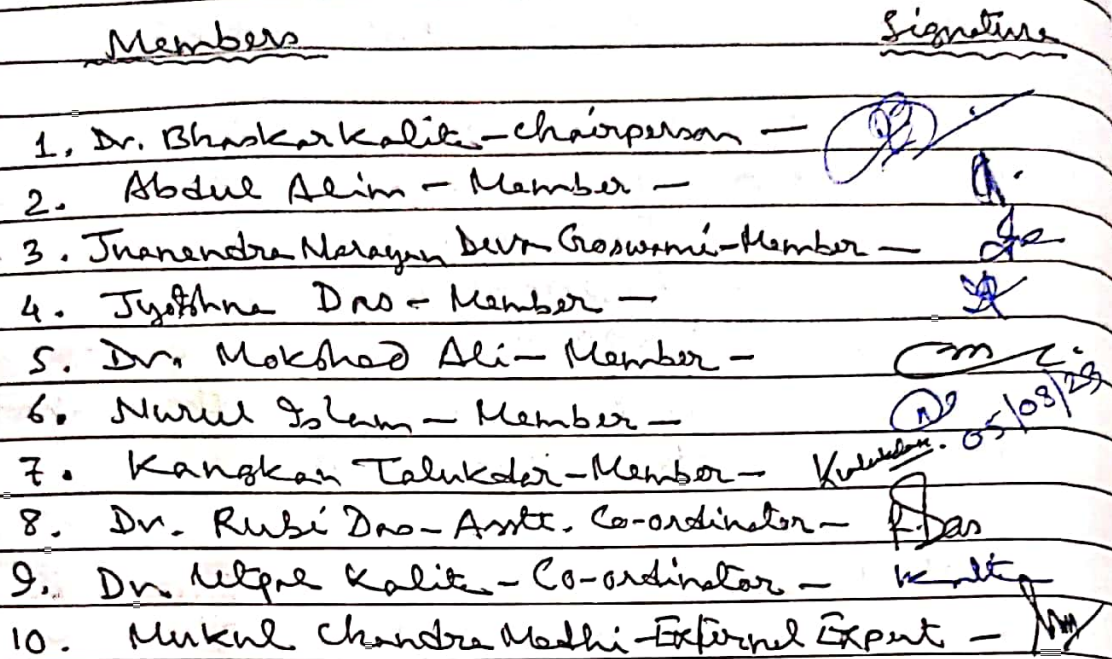 Members Signature
1. Dr. Bhaskar Kalita - Chairperson -
2. Abdul Alim - Member -
3. Jnanendra Narayan Deva Goswami - Member -
4. Jyotshna Das - Member -
5. Dr. Mokshad Ali - Member -
6. Nurul Islam - Member - 05/08/23
7. Kangkan Talukdar - Member -
8. Dr. Rubi Das - Asstt. Co-ordinator - R. Das
9. Dr. Utpal Kalita - Co-ordinator - Kalita
10. Mukul Chandra Medhi - External Expert -